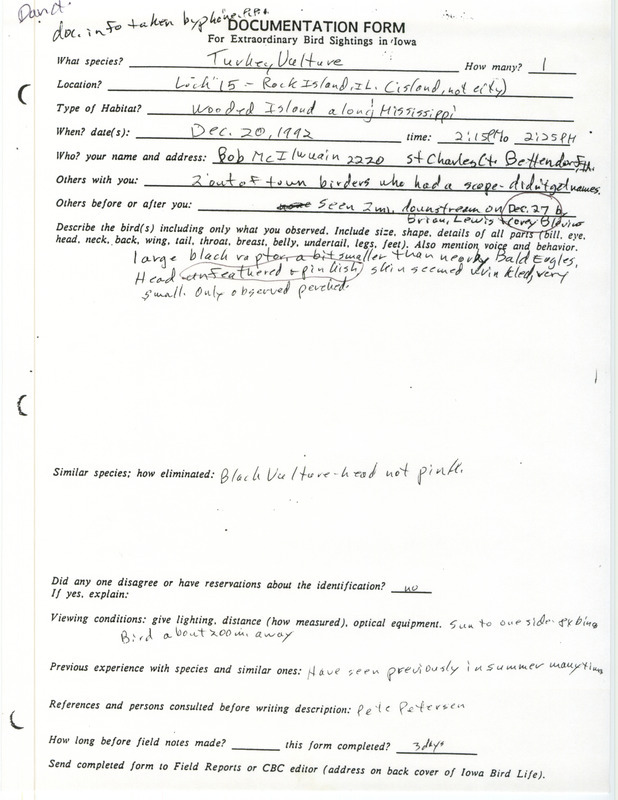 doc. info taken by phone. P.P.
DOCUMENTATION FORM
For Extraordinary Bird Sightings in Iowa
What species? Turkey Vulture How many? 1
Location? Lock 15 - Rock Island, IL. (island, not city)
Type of Habitat? Wooded Island along Mississippi
When? date(s): Dec. 20, 1992 time: 2:15PM to 2:25PM
Who? your name and address: Bob McIlwain 2220 St Charles Ct. Bettendorf, IA.
Others with you: 2 out of town birders who had a scope - didn't get names.
Others before or after you: seen 2 mi. downstream on Dec. 27 by
Brian, Lewis & Corey Blevins
Describe the bird(s) including only what you observed. Include size, shape, details of all parts (bill, eye,
head, neck, back, wing, tail, throat, breast, belly, undertail, legs, feet). Also mention voice and behavior.
large black raptor, a bit smaller than nearby Bald Eagles.
Head unfeathered & pinkish, skin seemed wrinkled, very
small. Only observed perched.
Similar species; how eliminated: Black Vulture - head not pink.
Did any one disagree or have reservations about the identification? no
If yes, explain:
Viewing conditions: give lighting, distance (how measured), optical equipment. Sun to one side - 8x bins
Bird about 200m. away
Previous experience with species and similar ones: Have seen previously in summer many times
References and persons consulted before writing description: Pete Petersen
How long before field notes made? this form completed? 3 days
Send completed form to Field Reports or CBC editor (address on back cover of Iowa Bird Life).